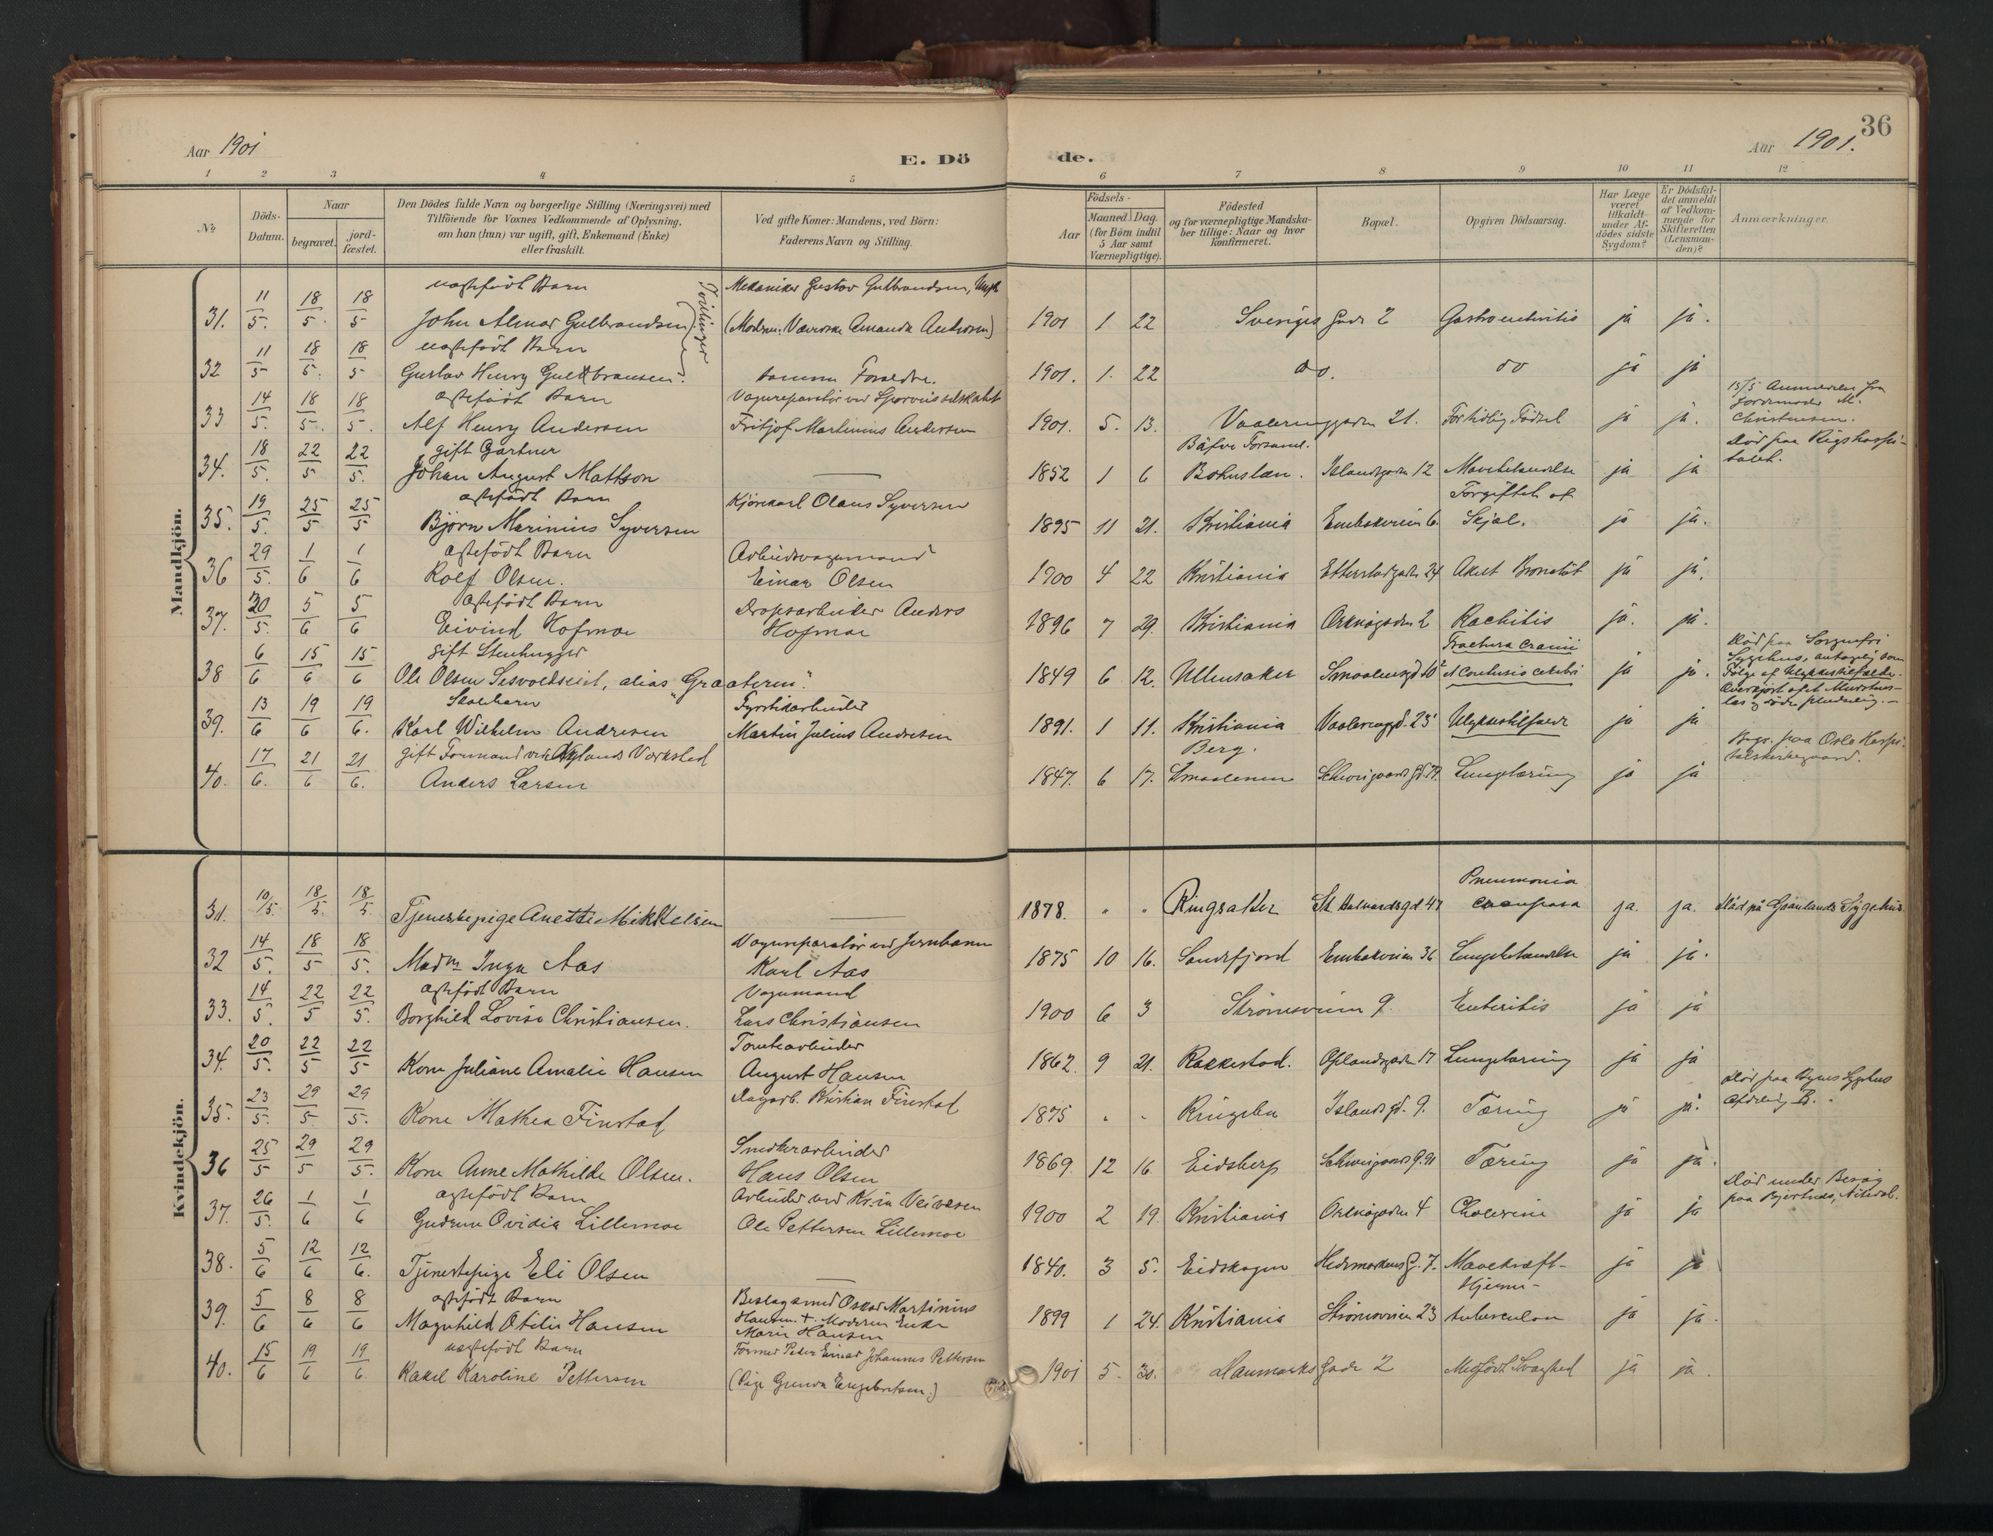 36
Aar 1901
E. Dö
de.
Aar 1901.
1 2 3 4 5 6 7 8 9 10 11 12
No
Döds-
Datum.
Naar
begravet.
jord-
fæstet.
Den Dödes fulde Navn og borgerlige Stilling (Næringsvei) med
Tilföiende for Voxnes Vedkommende af Oplysning,
om han (hun) var ugift, gift, Enkemand (Enke)
eller fraskilt.
Ved gifte Koner: Mandens, ved Börn:
Faderens Navn og Stilling.
Födsels-
Aar
Maaned. Dag.
(for Börn indtil
5 Aar samt
Værnepligtige).
Födested
og for værnepligtige Mandska-
ber tillige: Naar og hvor
konfirmeret.
Bopæl.
Opgiven Dödsaarsag.
Har Læge
været
tilkaldt
under Af-
dödes sidste
Sygdom?
Er Dödsfal-
det anmeldt
af Vedkom-
mende for
Skifteretten
(Lensman-
den)?
Anmærkninger.
Mandkjön.
31. 11/5. 18/5. 18/5 uægtefödt Barn
John Almar Gulbrandsen Tvillinger
Mekaniker Gustav Gulbrandsen,
(Moderen: Væverske Amanda Andersen)
1901 1 22 Sveriges Gade 2 Gastroenteritis ja ja.
32 11/5 18/5. 18/5 uægtefödt Barn
Gustav Henry Gulbransen. samme Forældre.
1901. 1. 22 do. do ja ja
33 14/5. 18/5. 18/5. ægtefödt Barn
Alf Henry Andersen
Vognreparatör ved Sporveisselskabet
Fritjof Martinius Andersen
1901. 5. 13. Vaalerenggaden 21. For tidlig Födsel ja ja.
15/5 Anmeldelse fra
Jordemoder M.
Christensen.
34. 18/5. 22/5 22/5. gift Gartner
Johan August Mattson
1852 1 6 Bäfve Forsaml.
Bohuslæn. Islandsgaden 12 Mavebetændelse ja ja
Död paa Rigshospi-
talet.
35. 19/5. 25/5 25/5 ægtefödt Barn
Björn Marinius Syversen
Kjörekarl Olaus Syversen
1895 11 21. Kristiania Enebakveien 6. Forgiftet af
ja ja.
36 29/5. 1/6 1/6 ægtefödt Barn
Rolf Olsen.
Arbeidsvognmand
Einar Olsen
1900 4 22 Kristiania Etterstadgaden 24 Akut Bronchit ja ja.
37. 30/5. 5/6 5/6 ægtefödt Barn
Eivind Hofmoe
Dropsarbeider Anders
Hofmoe
1896 7 29. Kristiania Orknögaden 2 Rachitis ja. ja.
38 6/6 15/6 15/6 gift Stenhugger
Ole Olsen alias "Graateren".
1849 6 12. Ullensaker Fractura cranii
& Contusio cerebri ja ja.
Död paa Sorgenfri
Sygehus, antagelig som
Fölge af Ulykkestilfælde.
39. 13/6 19/6 19/6. Skolebarn
Karl Wilhelm Andresen
Fyrstikarbeider
Martin Julius Andresen
1891. 1 11. Kristiania Vaalerenggd. 23 Ulykkestilfælde ja ja
40. 17/6. 21/6 21/6. gift Formand ved Værksted
Anders Larsen
1847. 6 17. Berg.
Smaalenene Schweigaards Gd. Lungetæring ja ja
Begr. paa Oslo Hospi-
talskirkegaard.
Kvindekjön.
31. 10/5. 18/5 18/5. Tjenestepige Anette Mikkelsen
1878. " " Ringsaker St Halvardsgd 47 Pneumonia
crouposa ja. ja. Död på Grönlands Sygehus
32 14/5. 18/5 18/5. Madm Inga Aas
Vognreparatör ved Jernbanen
Karl Aas
1875 10 16. Sandefjord Enebakveien 36 Lungebetændelse ja ja.
33. 14/5 22/5 22/5. ægtefödt Barn
Borghild Lovise Christiansen.
Vognmand
Lars Christiansen
1900 6 3 Strömsveien 9. Enteritis ja ja
34. 20/5. 22/5 22/5 Kone Juliane Amalie Hansen
Tomtearbeider
August Hansen
1862. 9 21. Rakkestad. Oplandsgaden 17 Lungetæring ja ja
35. 23/5 29/5. 29/5. Kone Mathea Finstad
Dagarb. Kristian Finstad
1875 " " Ringebu Islandsgd. 9. Tæring ja ja.
Död paa Byens Sygehus
Afdeling B.
36 25/5 29/5 29/5. Kone Anne Mathilde Olsen.
Smedkerarbeider
Hans Olsen
1869. 12 16 Eidsberg Schweigaards g. 91 Tæring ja ja.
37. 26/5. 1/6 1/6 ægtefödt Barn
Gudrun Ovidia Lillemoe
Arbeider ved Kr.ia Veivæsen
Ole Pettersen Lillemoe
1900 2 19. Kristiania Orknögaden 4 Cholerine ja ja
Död under Besög
paa Bjertnæs, Nitedal.
38. 5/6 12/6 12/6. Tjenestepige Eli Olsen
1840. 3 5. Eidskogen Hedemarkens G. 7. Mavekræft ja ja
39. 5/6 8/6 8/6 ægtefödt Barn
Magnhild Otilie Hansen
Beslagsmed Oskar Martinius
Hansen + Moderen Enke
Marie Hansen
1899 1 24. Kristiania Strömsveien 23 Hjerne-
tuberculose ja ja.
40. 15/6 19/6 19/6. uægtefödt Barn
Rakel Karoline Pettersen
Former Peder Einar Johannes Pettersen
(Pige Gunda Engebretsen.)
1901 5 30. Danmarks Gade 2 Medfödt Svaghed ja ja.